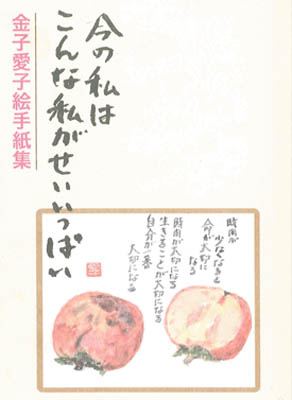 今の私は
こんな私がせいいっぱい
金子愛子絵手紙集
時間が
少なくなると
命が大切に
なる
時間が大切になる
生きることが大切になる
自分が一番
大切になる